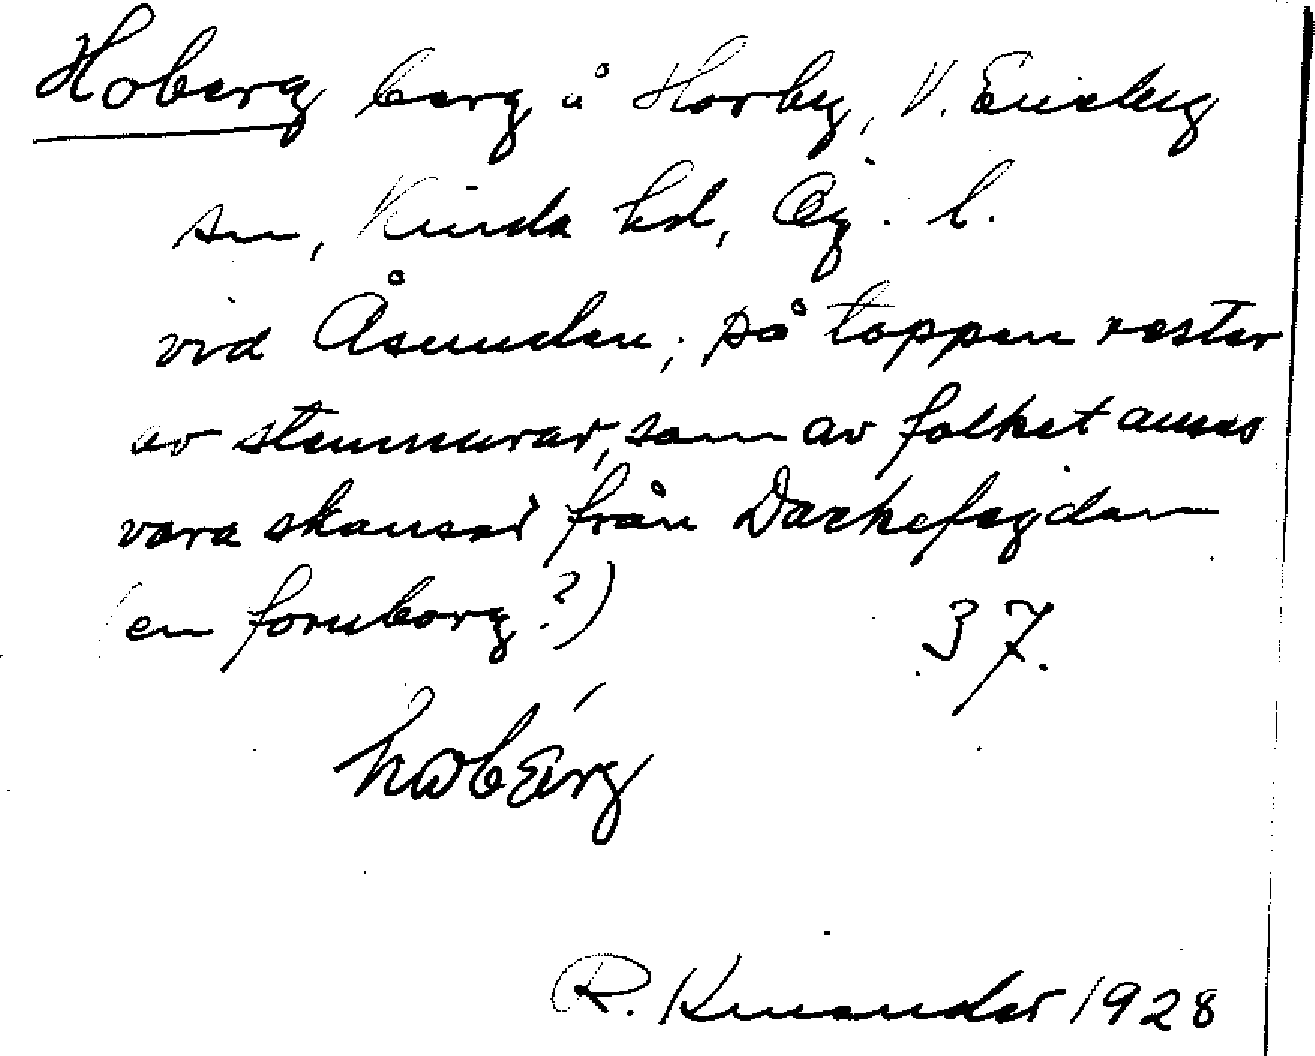 Hoberg berg å Horby, V. Eneby
sn, Kinda hd, Ög. l.
vid Åsunden; på toppen rester
av stenmurar, som av folket anses
vara skansar från Dackefejden
(en fornborg?) 37.
R. Kinander 1928